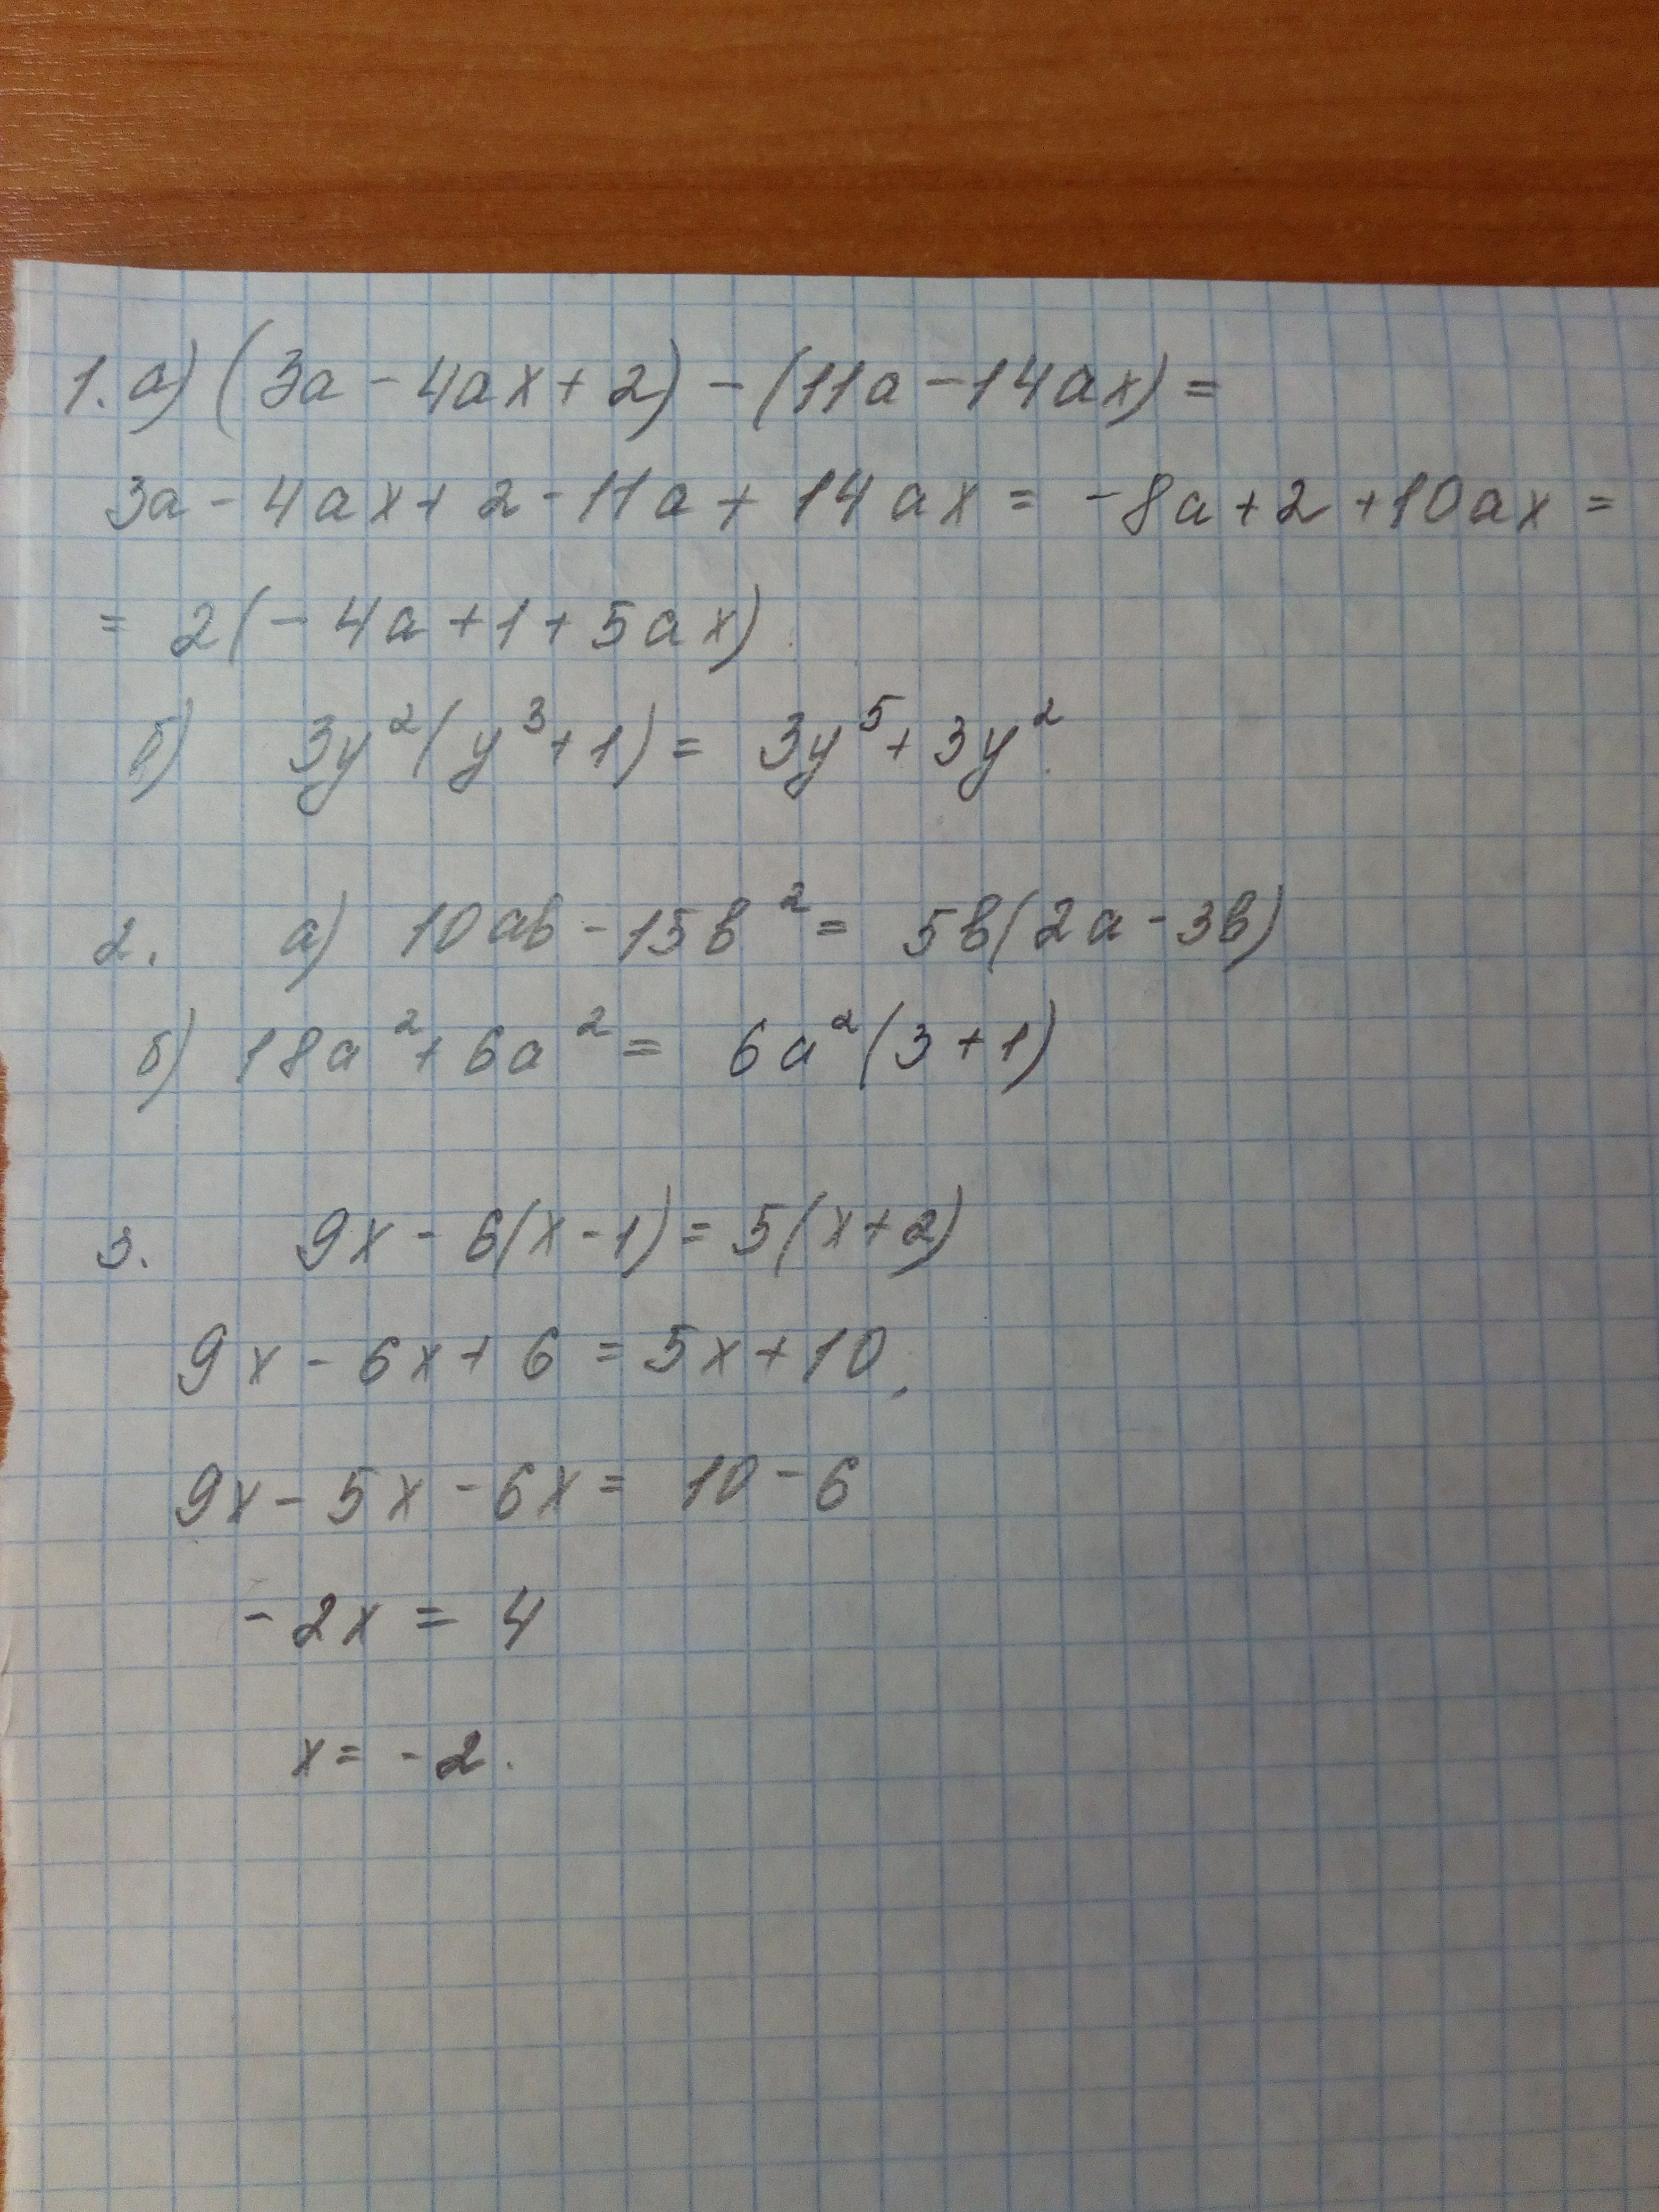 1. а) (3a - 4ax + 2) - (11a - 14ax) =
3a - 4ax + 2 - 11a + 14ax = -8a + 2 + 10ax =
= 2(-4a + 1 + 5ax)
б) 3y²(y³ + 1) = 3y⁵ + 3y².
2. а) 10ab - 15b² = 5b(2a - 3b)
б) 18a² + 6a² = 6a²(3 + 1)
3. 9x - 6(x - 1) = 5(x + 2)
9x - 6x + 6 = 5x + 10.
9x - 5x - 6x = 10 - 6
-2x = 4
x = -2.